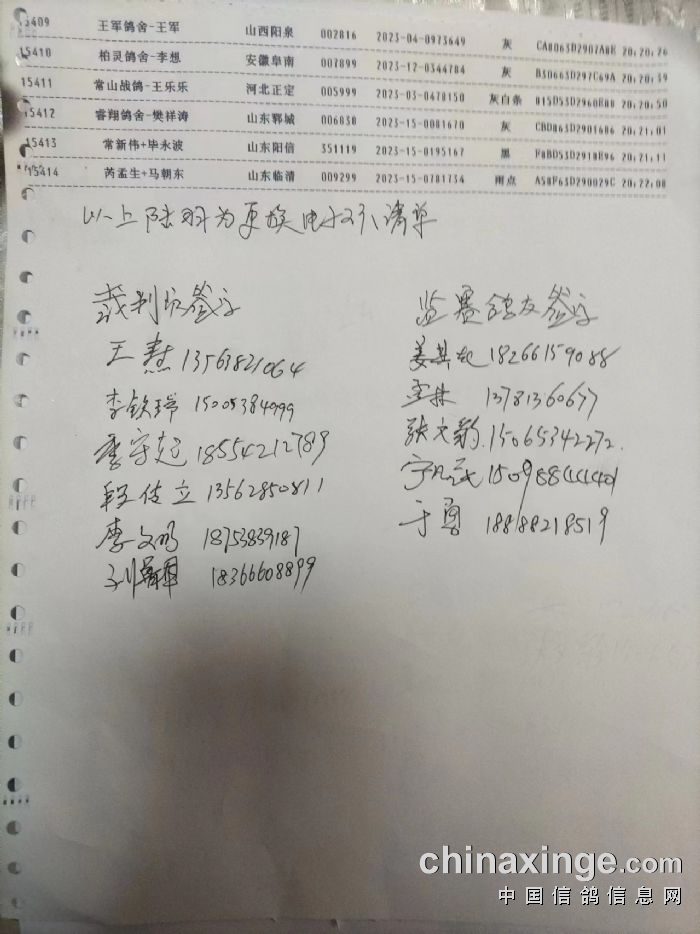 15409 王军鸽舍-王军 山西阳泉 002816 2023-04-0973649 灰 20:20:26
15410 柏灵鸽舍-李想 安徽阜南 007899 2023-12-0344784 灰 B30663D297C69A 20:20:39
15411 常山战鸽-王乐乐 河北正定 005999 2023-03-0478150 灰白条 015D53D2960E88 20:20:50
15412 睿翔鸽舍-樊祥涛 山东郓城 006030 2023-15-0081670 灰 CBD863D2901686 20:21:01
15413 常新伟+毕永波 山东阳信 351119 2023-15-0195167 黑 F8BD53D2918E96 20:21:11
15414 芮孟生+马朝东 山东临清 009299 2023-15-0781734 雨点 A58F63D290029C 20:22:08
以上陆羽为更换电子环清单
裁判员签字 监赛鸽友签字
王慧 13563821064 18266159088
李铁瑞 15005384099 13781360677
季守起 18554212789 张文豹 15065342272
段传立 13562850811
李文鹏 18753839187 于勇 18888218519
18366608899
chinaxinge.com
中国信鸽信息网